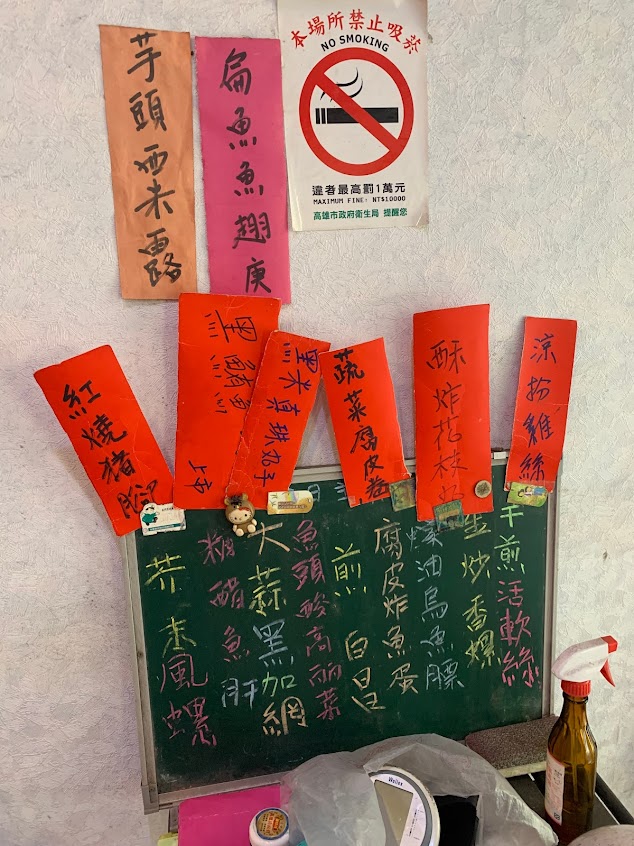 芋頭西米露
扁魚魚翅庚
本場所禁止吸菸
NO SMOKING
違者最高罰1萬元
MAXIMUM FINE: NT$10000
高雄市政府衛生局 提醒您
紅燒猪腳
黑
黑米真珠丸子
蔬菜腐皮卷
酥炸花枝
涼扮雞絲
芥末風螺
糖醋魚肝
大蒜黑加網
魚頭 高丽菜
煎 白昌
腐皮炸魚蛋
蠔油烏魚膘
炒香螺
干煎活軟絲
Weller